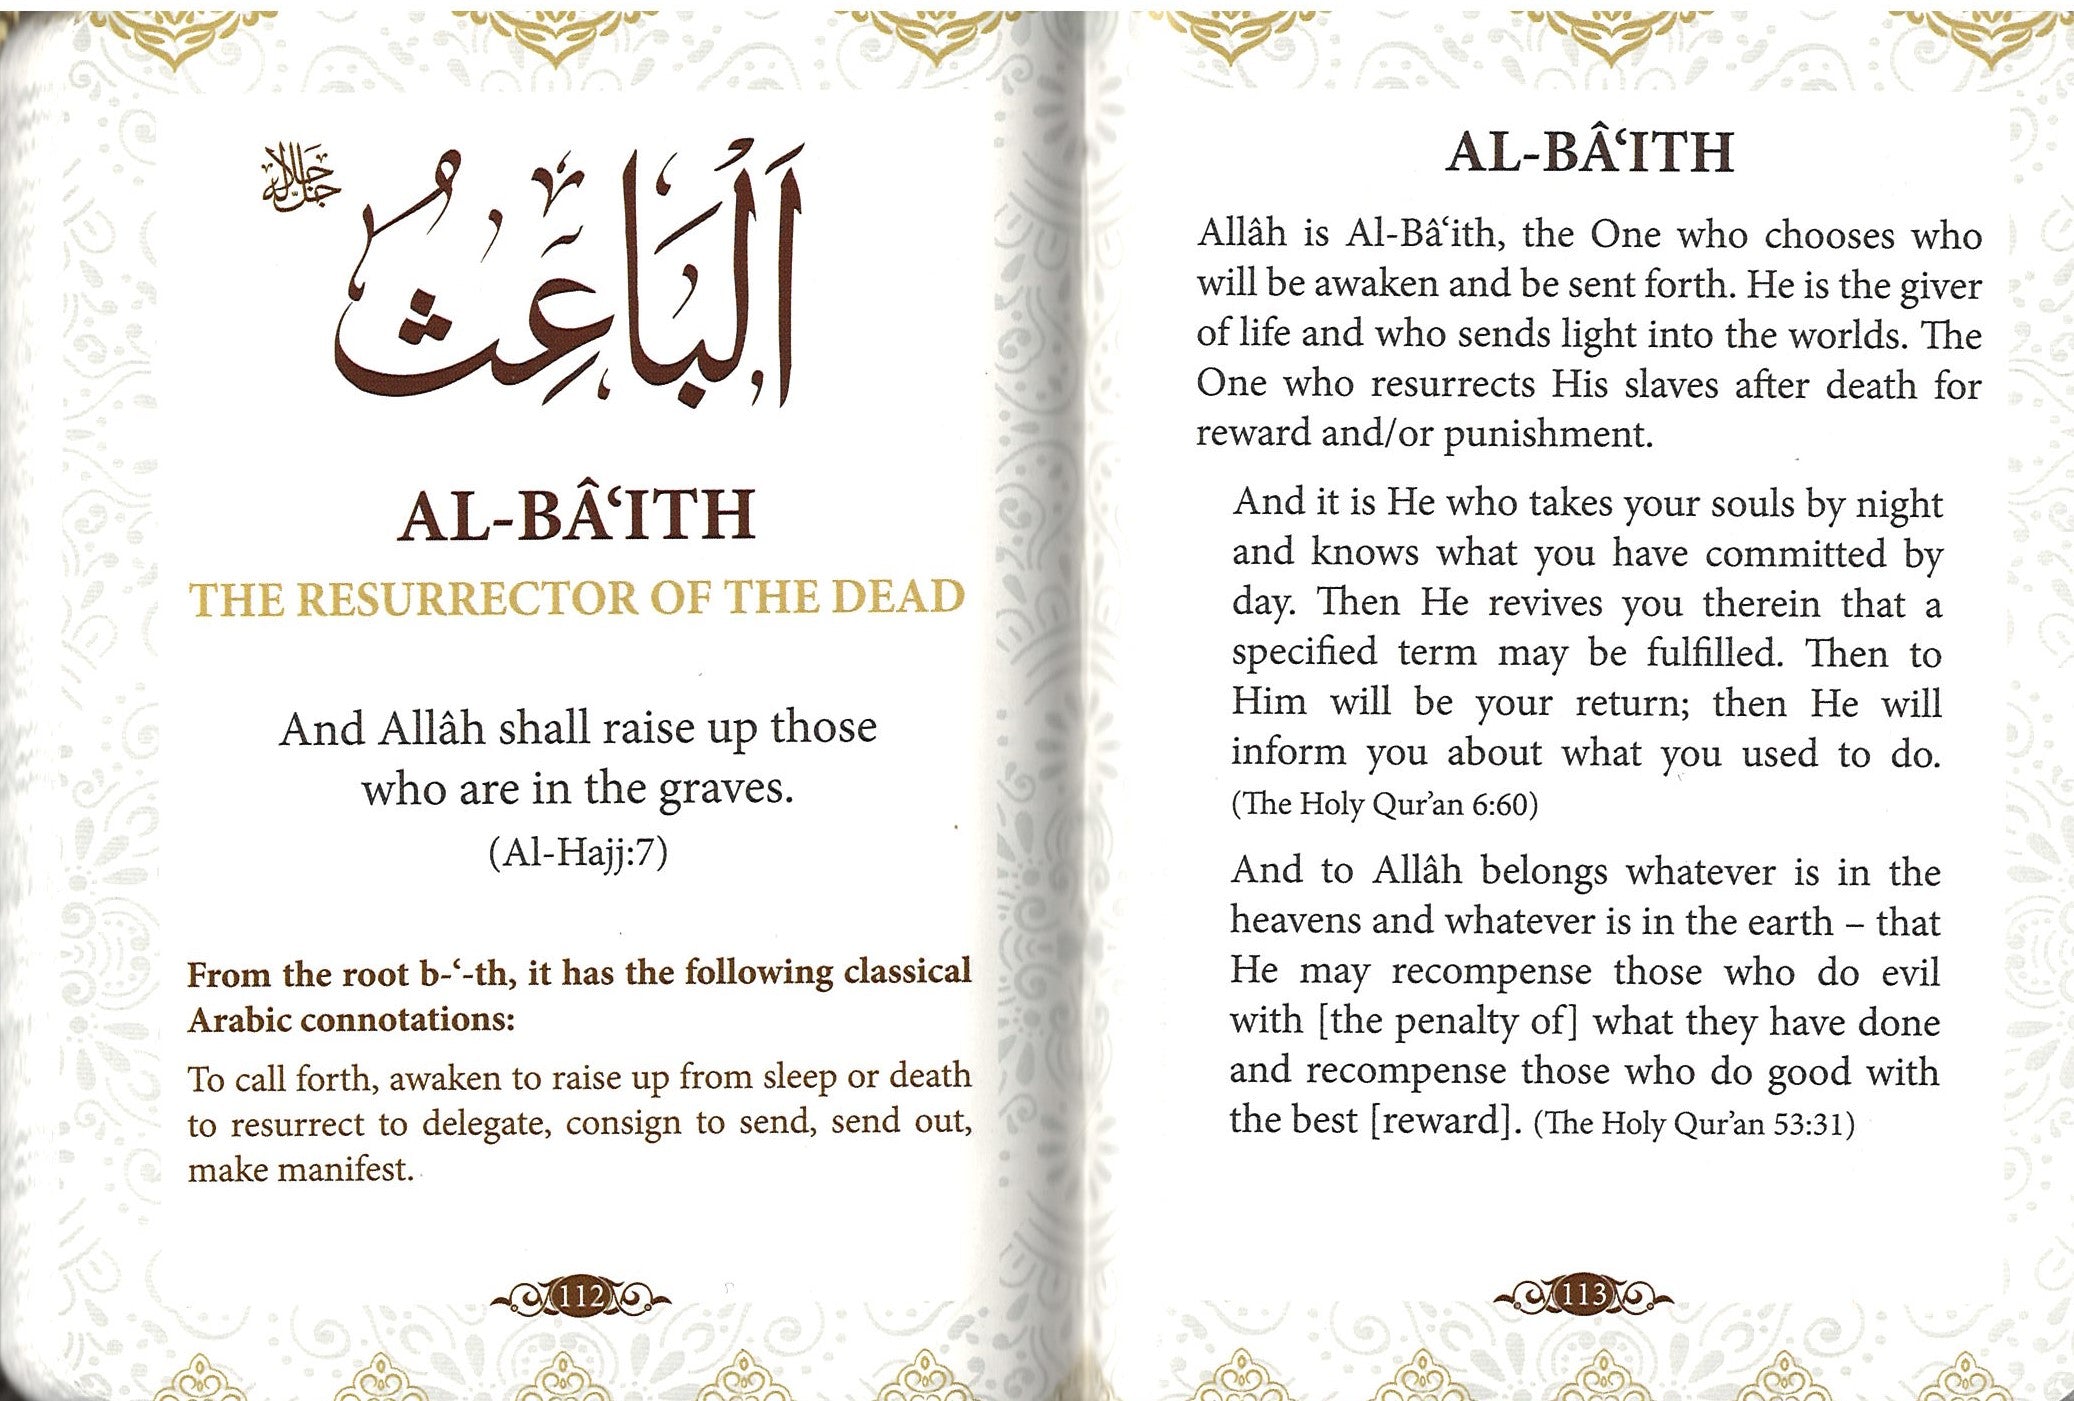 اَلْبَاعِثُ
جَلَّ جَلَالُهُ
AL-BÂ‘ITH
THE RESURRECTOR OF THE DEAD
And Allâh shall raise up those
who are in the graves.
(Al-Hajj:7)
From the root b-‘-th, it has the following classical
Arabic connotations:
To call forth, awaken to raise up from sleep or death
to resurrect to delegate, consign to send, send out,
make manifest.
112
AL-BÂ‘ITH
Allâh is Al-Bâ‘ith, the One who chooses who
will be awaken and be sent forth. He is the giver
of life and who sends light into the worlds. The
One who resurrects His slaves after death for
reward and/or punishment.
And it is He who takes your souls by night
and knows what you have committed by
day. Then He revives you therein that a
specified term may be fulfilled. Then to
Him will be your return; then He will
inform you about what you used to do.
(The Holy Qur’an 6:60)
And to Allâh belongs whatever is in the
heavens and whatever is in the earth – that
He may recompense those who do evil
with [the penalty of] what they have done
and recompense those who do good with
the best [reward]. (The Holy Qur’an 53:31)
113